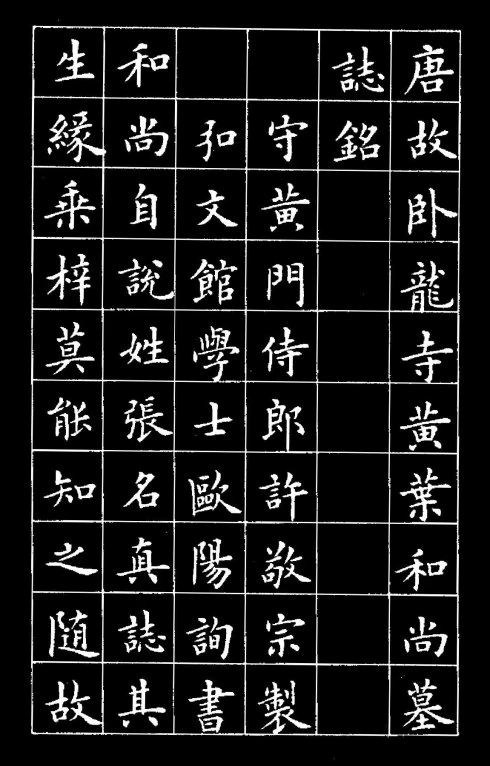 唐故卧龍寺黄葉和尚墓
誌銘
守黄門侍郎許敬宗製
弘文館學士歐陽詢書
和尚自說姓張名真誌其
生緣桑梓莫能知之随故